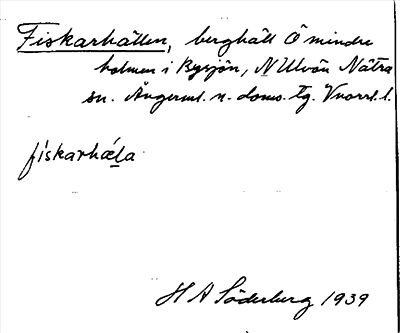 Fiskarhällen, berghäll Ö mindre
holmen i Bysjön, N Ulvön Nätra
sn. Ångerml. n. doms. Tg. Vnorrl. l.
fiskarhæla
H A Söderberg 1939